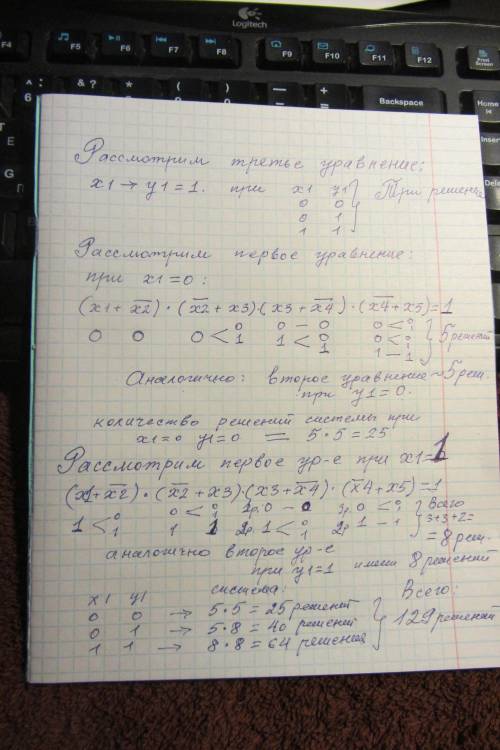 Logitech
F4 F5 F6 F7 F8 F9 F10 F11 F12 Print Screen
Backspace
Home
Рассмотрим третье уравнение:
x1 → y1 = 1. при x1 y1 } Три решения
0 0
0 1
1 1
Рассмотрим первое уравнение:
при x1=0:
(x1+x̅2)·(x̅2+x3)·(x3+x̅4)·(x̅4+x5)=1
0 0 0 < 0 0 – 0 0 < 0 } 5 решений
1 1 < 0 0 < 0
1 1 1 – 1
Аналогично: второе уравнение ~ 5 реш.
при y1=0.
количество решений системы при
x1=0 y1=0 = 5·5=25
Рассмотрим первое ур-е при x1=1
(x1+x̅2)·(x̅2+x3)·(x3+x̅4)·(x̅4+x5)=1
1 < 0 0 < 0 2р. 0 – 0 3р. 0 < 0 } Всего
1 1 1 2р. 1 < 0 2р. 1 – 1 3+3+2=
1 = 8 реш.
аналогично второе ур-е
при y1=1 имеем 8 решений
система:
x1 y1 Всего:
0 0 → 5·5=25 решений
0 1 → 5·8=40 решений } 129 решений
1 1 → 8·8=64 решения